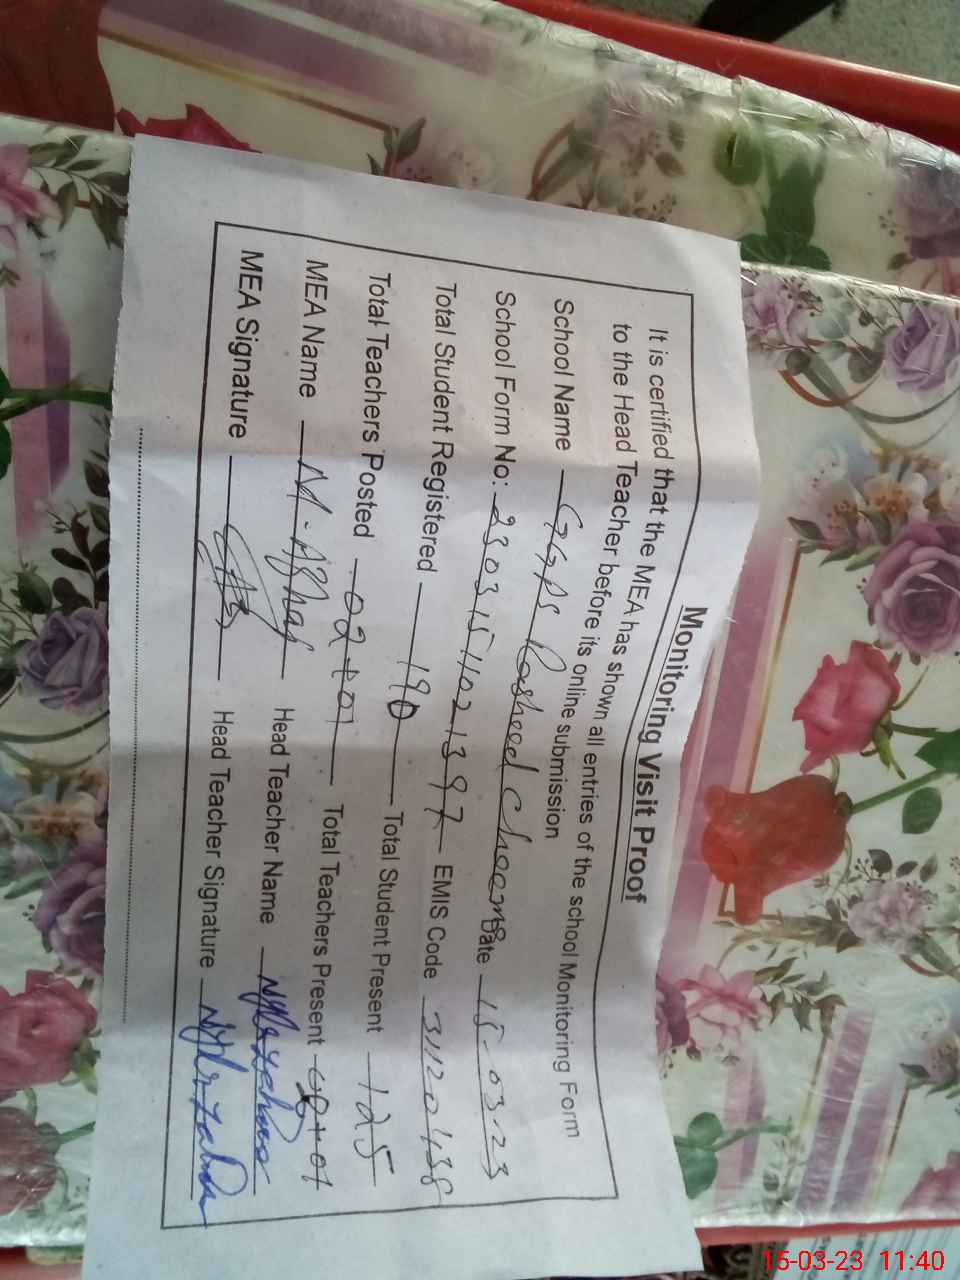 Monitoring Visit Proof
It is certified that the MEA has shown all entries of the school Monitoring Form
to the Head Teacher before its online submission
School Name GGPS Rasheed Cheema Date 15-03-23
School Form No: 2303151102 1397 EMIS Code 31120438
Total Student Registered 190 Total Student Present 125
Total Teachers Posted 02+01 Total Teachers Present +01
MEA Name M. Afzal Head Teacher Name
MEA Signature Head Teacher Signature
15-03-23 11:40